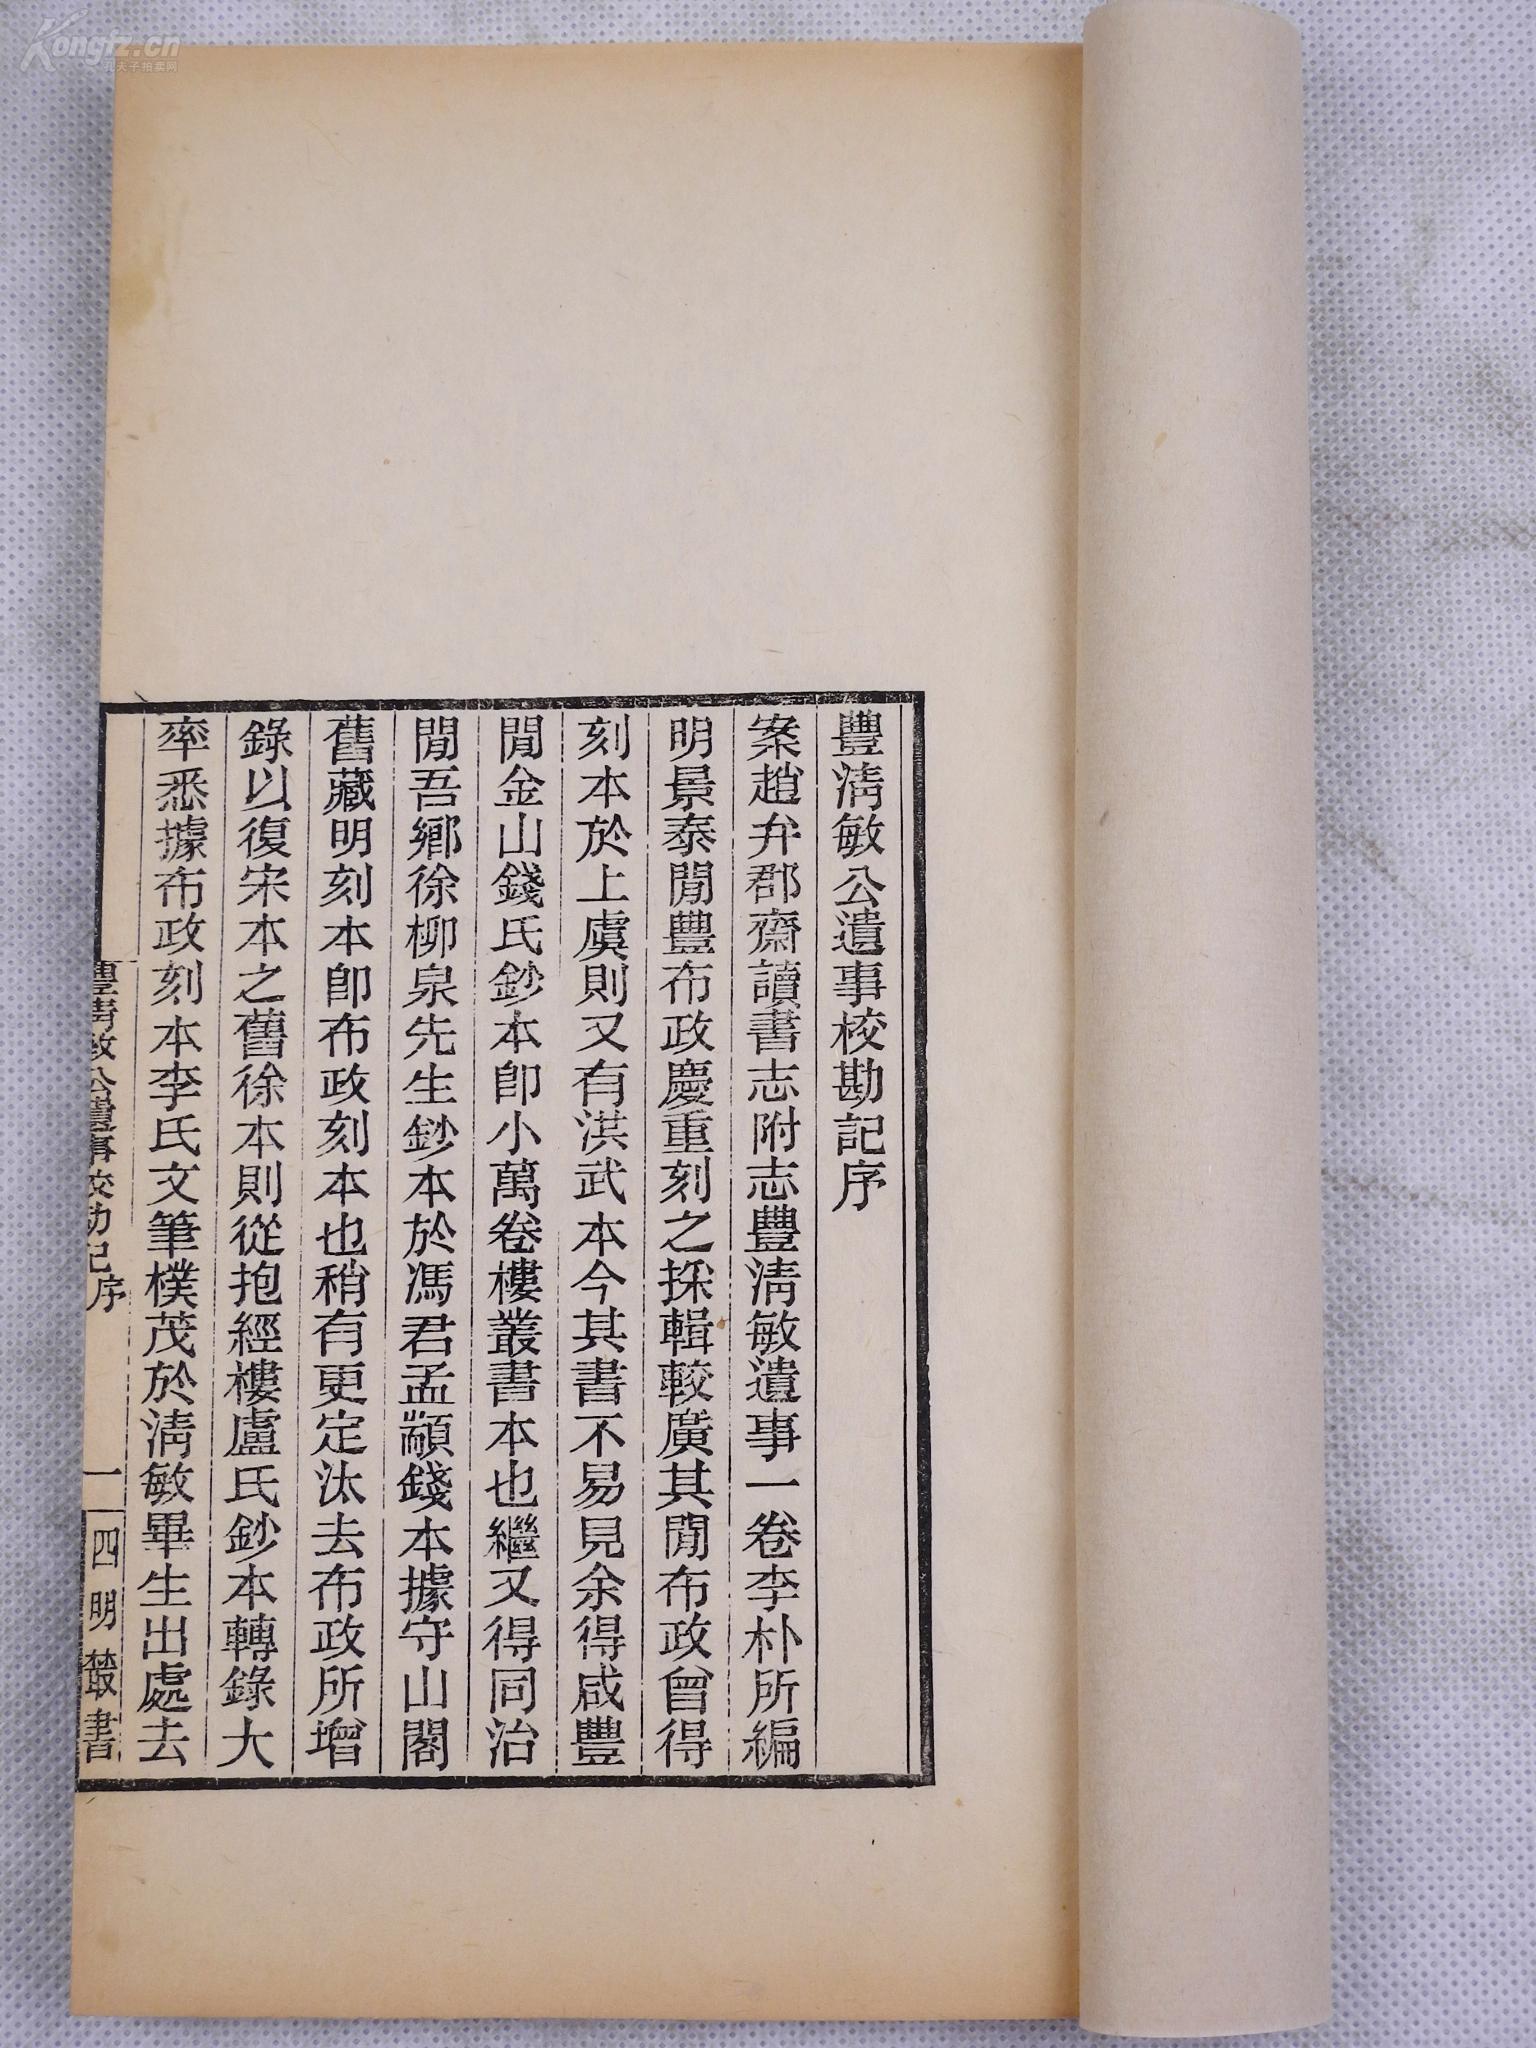 豐淸敏公遺事校勘記序
案趙弁郡齋讀書志附志豐淸敏遺事一卷李朴所編
明景泰閒豐布政慶重刻之採輯較廣其閒布政曾得
刻本於上虞則又有洪武本今其書不易見余得咸豐
閒金山錢氏鈔本卽小萬卷樓叢書本也繼又得同治
閒吾鄉徐柳泉先生鈔本於馮君孟顓錢本據守山閣
舊藏明刻本卽布政刻本也稍有更定汰去布政所增
錄以復宋本之舊徐本則從抱經樓盧氏鈔本轉錄大
率悉據布政刻本李氏文筆樸茂於淸敏畢生出處去
豐淸敏公遺事校勘記序
一
四明叢書
Kongfz.cn
孔夫子拍卖网